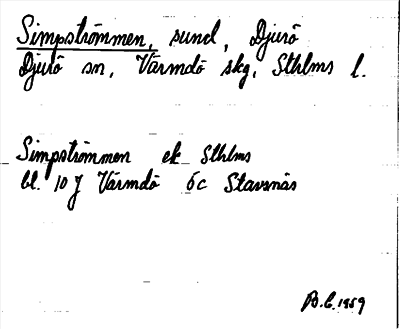 Simpströmmen, sund, Djurö
Djurö sn, Värmdö skg, Sthlms l.
Simpströmmen ek Sthlms
bl. 10 J Värmdö 6c Stavsnäs
B.E. 1959